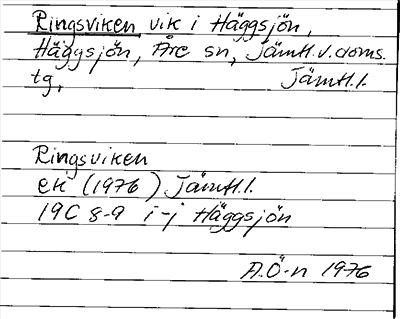 Ringsviken vik i Häggsjön,
Häggsjön, Åre sn, Jämtl. v. doms.
tg, Jämtl. l.
Ringsviken
ek (1976) Jämtl. l.
19C 8-9 i-j Häggsjön
A.Ö-n 1976